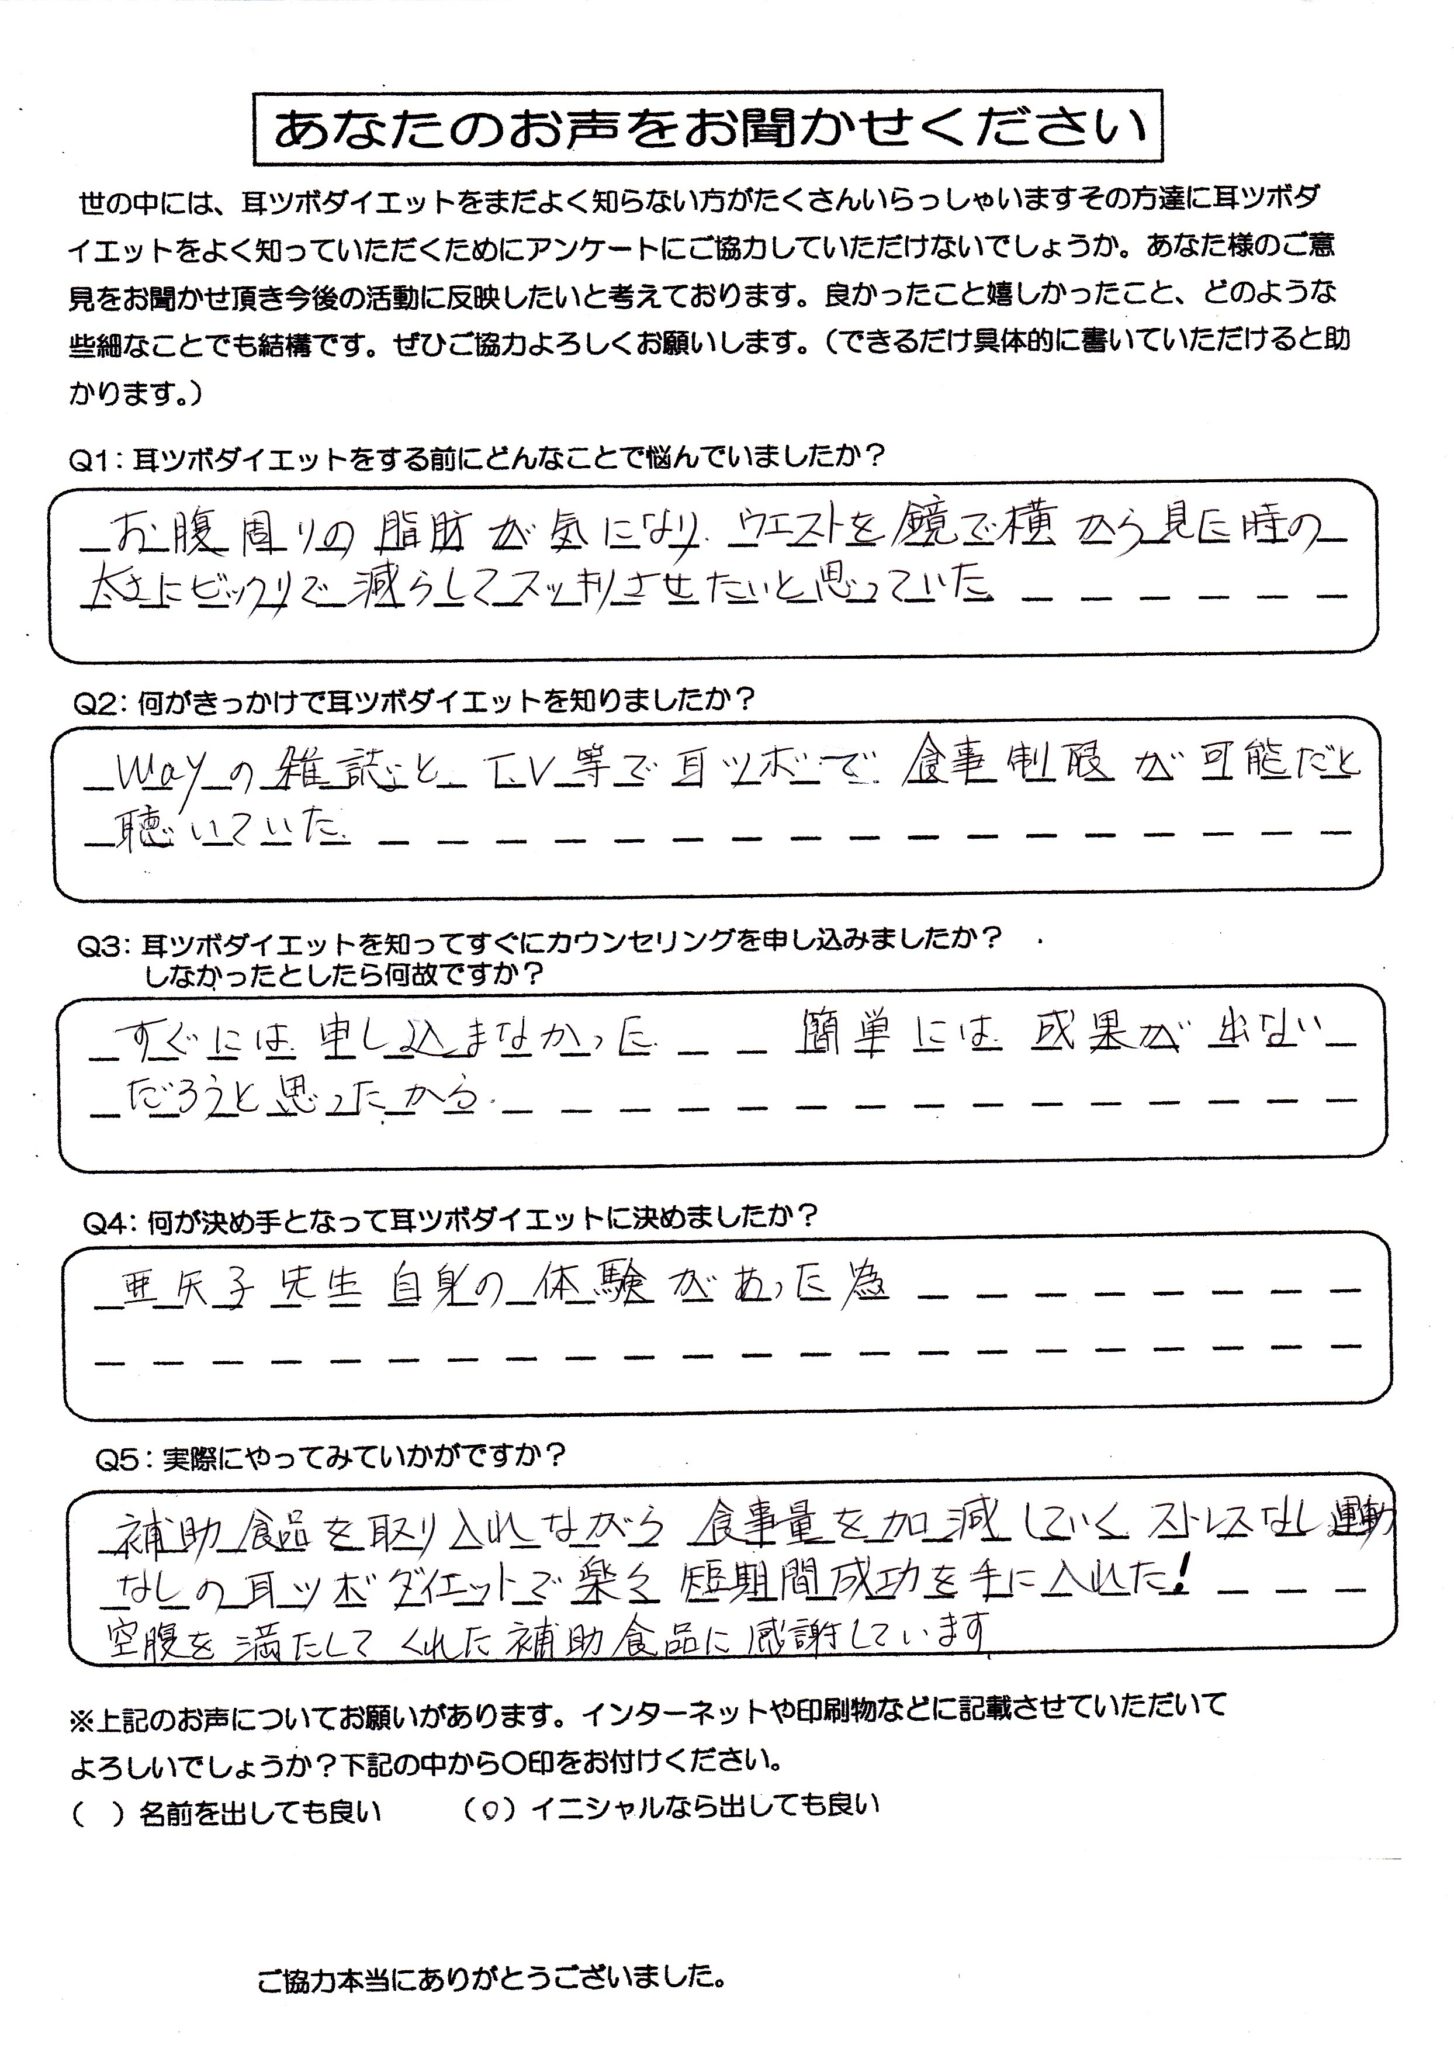 あなたのお声をお聞かせください
世の中には、耳ツボダイエットをまだよく知らない方がたくさんいらっしゃいますその方達に耳ツボダ
イエットをよく知っていただくためにアンケートにご協力していただけないでしょうか。あなた様のご意
見をお聞かせ頂き今後の活動に反映したいと考えております。良かったこと嬉しかったこと、どのような
些細なことでも結構です。ぜひご協力よろしくお願いします。(できるだけ具体的に書いていただけると助
かります。)
Q1:耳ツボダイエットをする前にどんなことで悩んでいましたか?
お腹周りの脂肪が気になり、ウエストを鏡で横から見た時の
太さにビックリで減らしてスッキリさせたいと思っていた。
Q2:何がきっかけで耳ツボダイエットを知りましたか?
Wayの雑誌と、TV等で耳ツボで食事制限が可能だと
聴いていた。
Q3:耳ツボダイエットを知ってすぐにカウンセリングを申し込みましたか?
しなかったとしたら何故ですか?
すぐには申し込まなかった。 簡単には成果が出ない
だろうと思ったから。
Q4:何が決め手となって耳ツボダイエットに決めましたか?
亜矢子先生自身の体験があった為
Q5:実際にやってみていかがですか?
補助食品を取り入れながら食事量を加減していくストレスなし、運動
なしの耳ツボダイエットで楽々短期間成功を手に入れた!
空腹を満たしてくれた補助食品に感謝しています
※上記のお声についてお願いがあります。インターネットや印刷物などに記載させていただいて
よろしいでしょうか?下記の中から〇印をお付けください。
( )名前を出しても良い (○)イニシャルなら出しても良い
ご協力本当にありがとうございました。